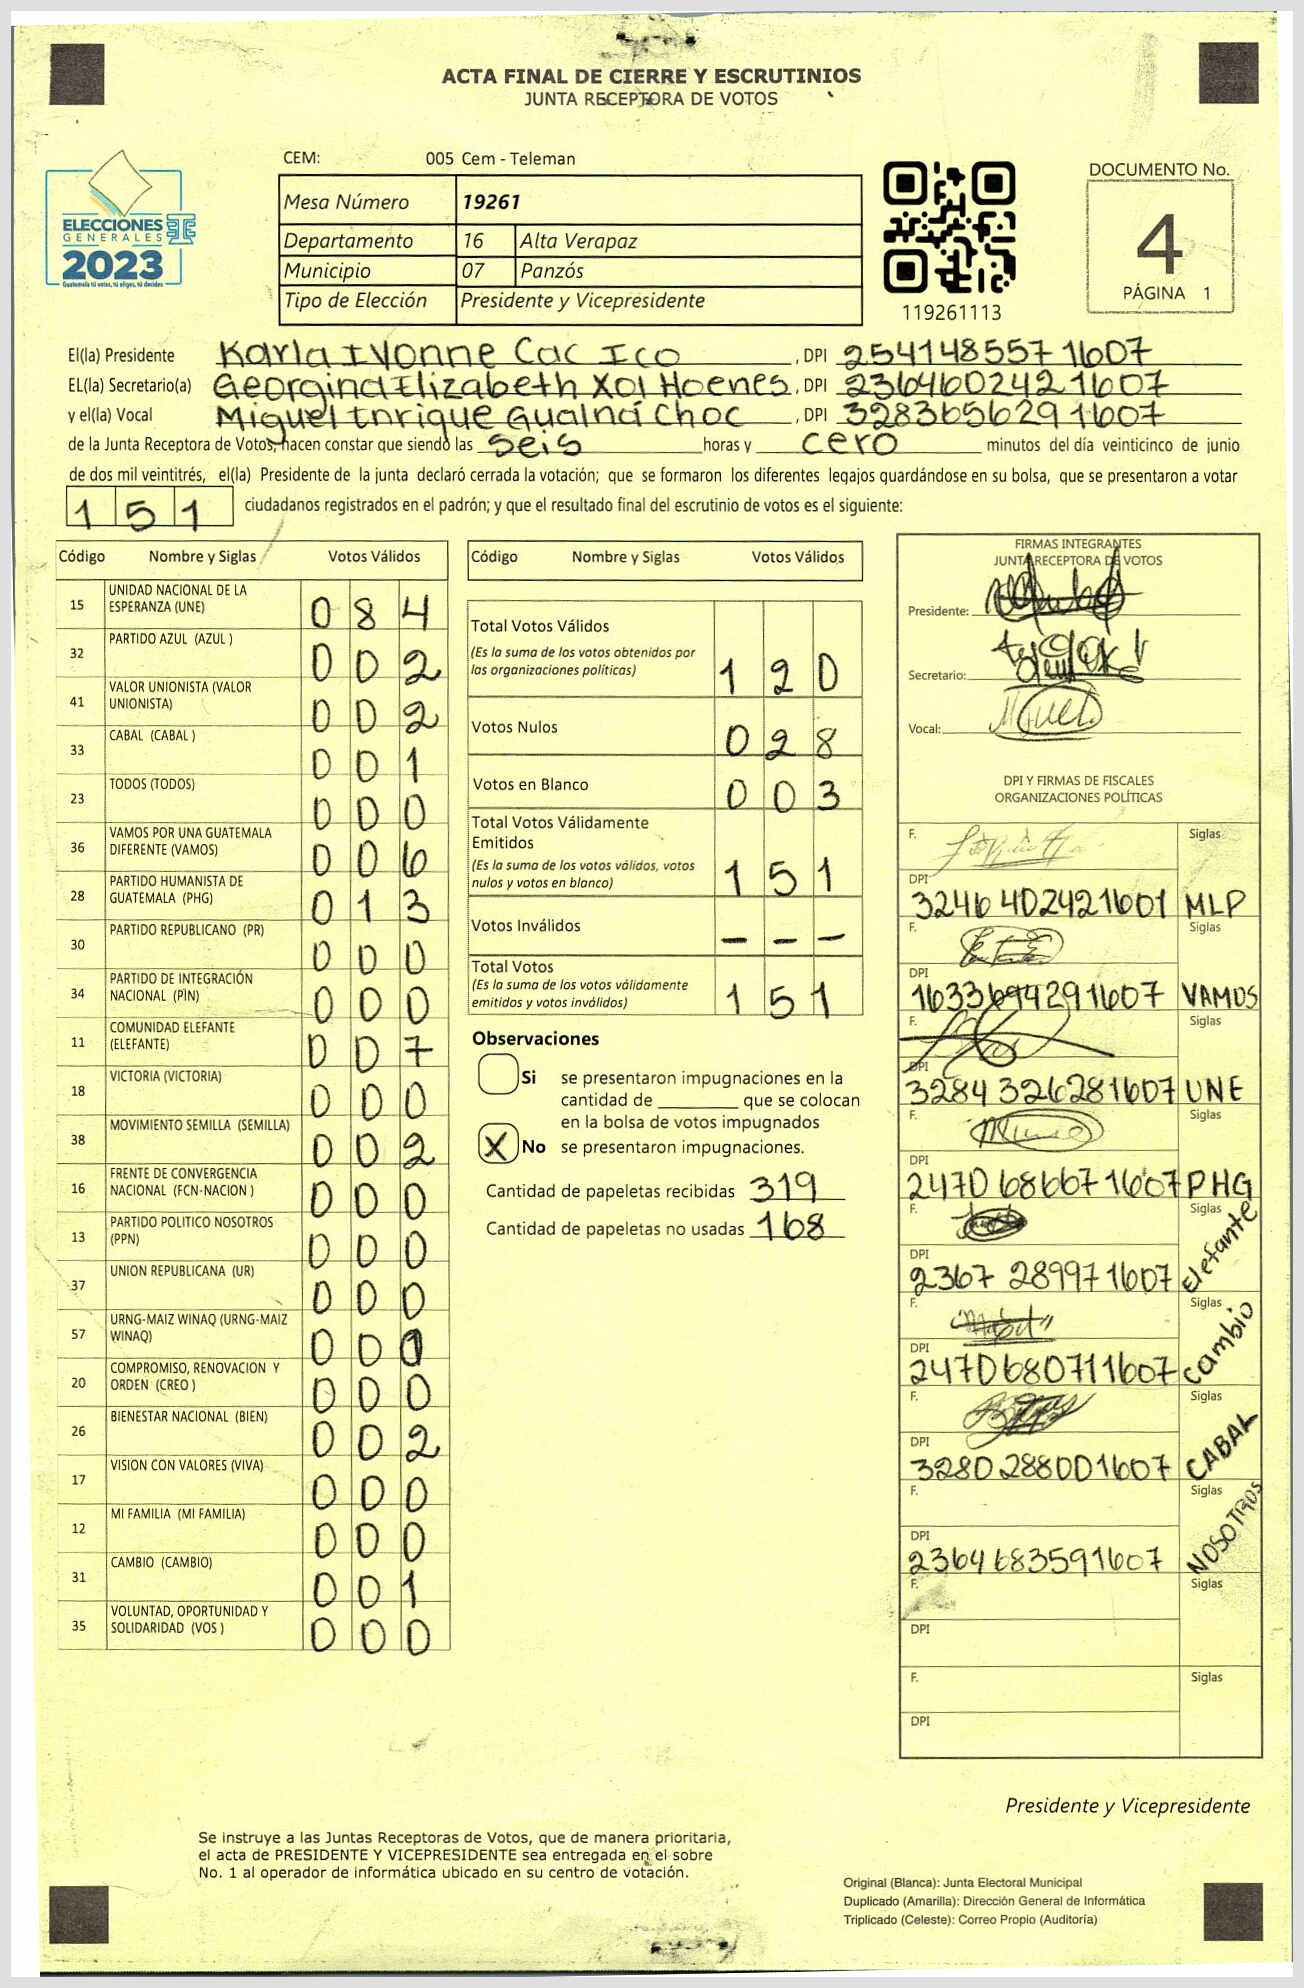 ACTA FINAL DE CIERRE Y ESCRUTINIOS
JUNTA RECEPTORA DE VOTOS
ELECCIONES
GENERALES
2023
Guatemala tú votas, tú eliges, tú decides
CEM: 005 Cem - Teleman
Mesa Número 19261
Departamento 16 Alta Verapaz
Municipio 07 Panzós
Tipo de Elección Presidente y Vicepresidente
119261113
DOCUMENTO No.
4
PÁGINA 1
El(la) Presidente Karla Ivonne Cac Ico, DPI 2541485571607
EL(la) Secretario(a) Georgina Elizabeth Xol Hoenes, DPI 2364602421607
y el(la) Vocal Miguel Enrique Gualná Choc, DPI 3283656291607
de la Junta Receptora de Votos, hacen constar que siendo las seis horas y cero minutos del día veinticinco de junio
de dos mil veintitrés, el(la) Presidente de la junta declaró cerrada la votación; que se formaron los diferentes legajos quardándose en su bolsa, que se presentaron a votar
151 ciudadanos registrados en el padrón; y que el resultado final del escrutinio de votos es el siguiente:
Código Nombre y Siglas Votos Válidos
15 UNIDAD NACIONAL DE LA ESPERANZA (UNE) 084
32 PARTIDO AZUL (AZUL ) 002
41 VALOR UNIONISTA (VALOR UNIONISTA) 002
33 CABAL (CABAL ) 001
23 TODOS (TODOS) 000
36 VAMOS POR UNA GUATEMALA DIFERENTE (VAMOS) 006
28 PARTIDO HUMANISTA DE GUATEMALA (PHG) 013
30 PARTIDO REPUBLICANO (PR) 000
34 PARTIDO DE INTEGRACIÓN NACIONAL (PIN) 000
11 COMUNIDAD ELEFANTE (ELEFANTE) 007
18 VICTORIA (VICTORIA) 000
38 MOVIMIENTO SEMILLA (SEMILLA) 002
16 FRENTE DE CONVERGENCIA NACIONAL (FCN-NACION ) 000
13 PARTIDO POLITICO NOSOTROS (PPN) 000
37 UNION REPUBLICANA (UR) 000
57 URNG-MAIZ WINAQ (URNG-MAIZ WINAQ) 00
20 COMPROMISO, RENOVACION Y ORDEN (CREO ) 000
26 BIENESTAR NACIONAL (BIEN) 002
17 VISION CON VALORES (VIVA) 000
12 MI FAMILIA (MI FAMILIA) 000
31 CAMBIO (CAMBIO) 001
35 VOLUNTAD, OPORTUNIDAD Y SOLIDARIDAD (VOS ) 000
Código Nombre y Siglas Votos Válidos
Total Votos Válidos 120
(Es la suma de los votos obtenidos por
las organizaciones políticas)
Votos Nulos 028
Votos en Blanco 003
Total Votos Válidamente
Emitidos 151
(Es la suma de los votos válidos, votos
nulos y votos en blanco)
Votos Inválidos - - -
Total Votos 151
(Es la suma de los votos válidamente
emitidos y votos inválidos)
Observaciones
Si se presentaron impugnaciones en la
cantidad de ________ que se colocan
en la bolsa de votos impugnados
X No se presentaron impugnaciones.
Cantidad de papeletas recibidas 319
Cantidad de papeletas no usadas 168
FIRMAS INTEGRANTES
JUNTA RECEPTORA DE VOTOS
Presidente:
Secretario:
Vocal:
DPI Y FIRMAS DE FISCALES
ORGANIZACIONES POLÍTICAS
F. Siglas
DPI
3246402421601 MLP
F. Siglas
DPI
1633694291607 VAMOS
F. Siglas
DPI
3284326281607 UNE
F. Siglas
DPI
2470686671607 PHG
F. Siglas
DPI
2367289971607 Elefante
F. Siglas
DPI
2470680711607 Cambio
F. Siglas
DPI
3280288001607 CABAL
F. Siglas
DPI
2364683591607 NOSOTROS
F. Siglas
DPI
F. Siglas
DPI
Presidente y Vicepresidente
Se instruye a las Juntas Receptoras de Votos, que de manera prioritaria,
el acta de PRESIDENTE Y VICEPRESIDENTE sea entregada en el sobre
No. 1 al operador de informática ubicado en su centro de votación.
Original (Blanca): Junta Electoral Municipal
Duplicado (Amarilla): Dirección General de Informática
Triplicado (Celeste): Correo Propio (Auditoría)